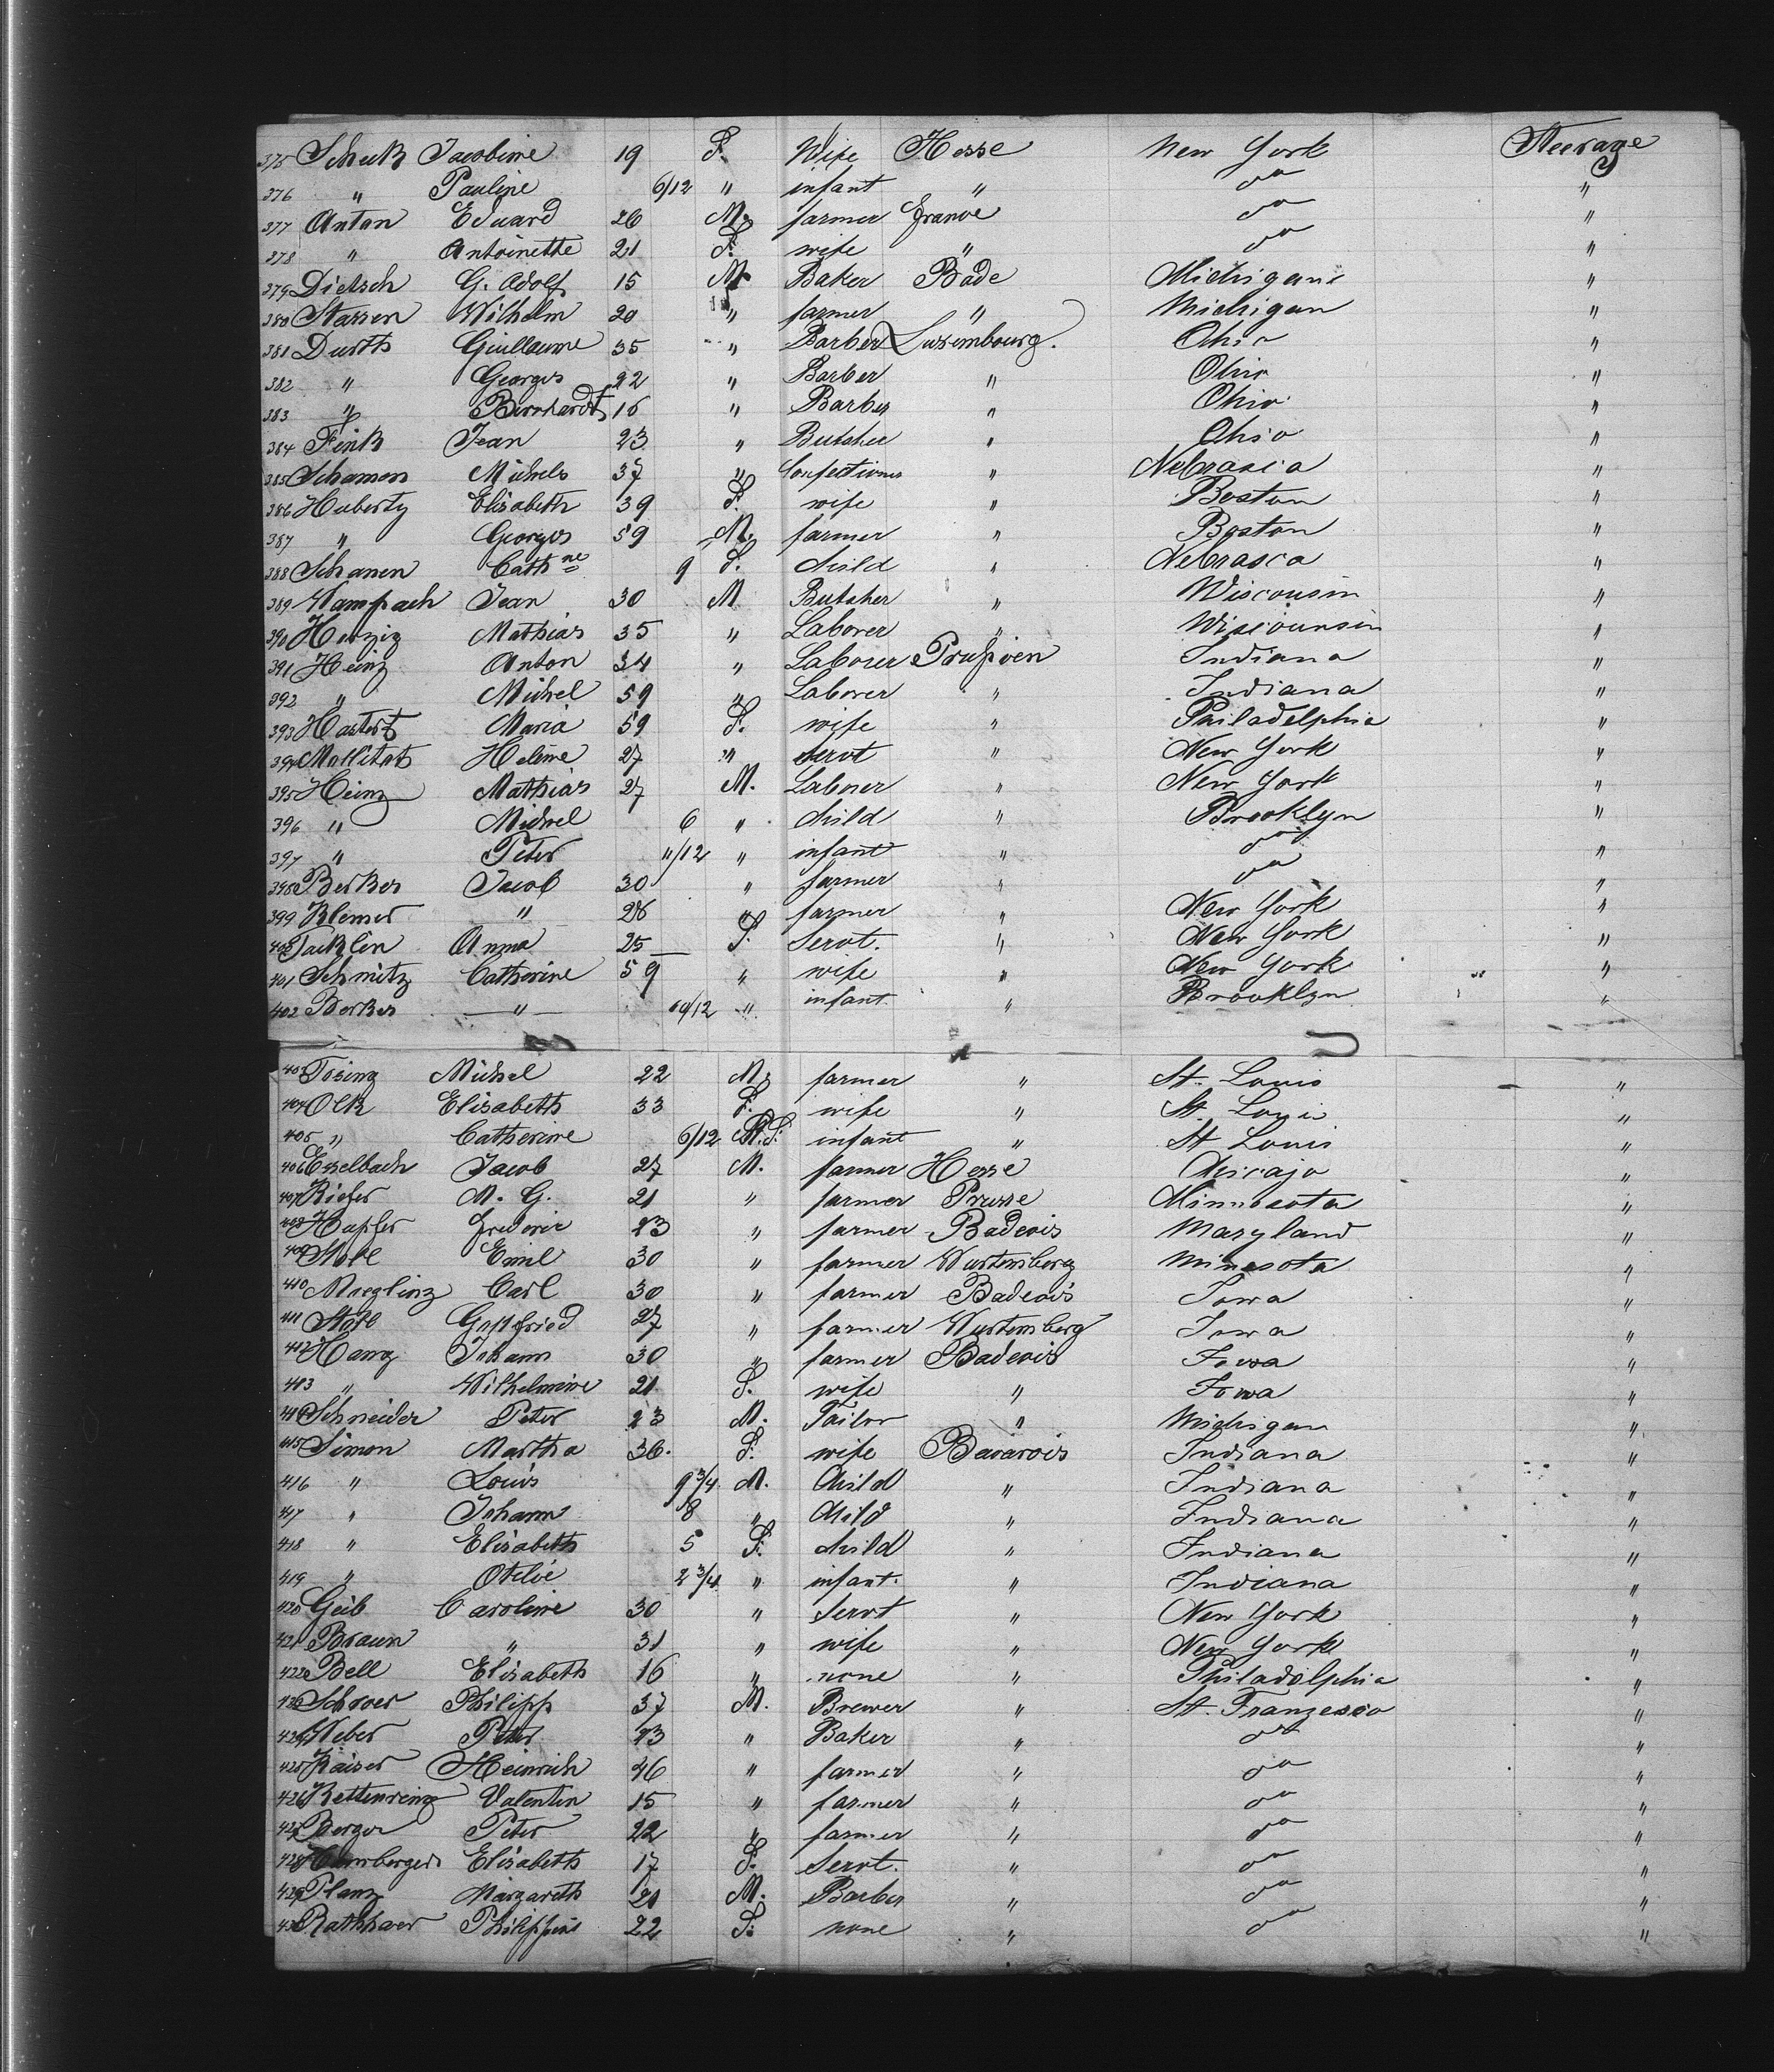 375 Schuk Jacobine 19 F. Wife Hesse New York Steerage
376 " Pauline 6/12 " infant " do "
377 Anton Eduard 26 M. farmer France do "
378 " Antoinette 21 F. wife " do "
379 Dietsch G. Adolf 15 M. Baker Bade Michigan "
380 Starren Wilhelm 20 " farmer " Michigan "
381 Durths Guillaume 35 " Barber Luxembourg. Ohio "
382 " Georges 22 " Barber " Ohio "
383 " Bernhardt 16 " Barber " Ohio "
384 Fink Jean 23 " Butcher " Ohio "
385 Schamon Michels 37 " Confectioner " Nebrasca "
386 Huberty Elisabeth 39 F. wife " Boston "
387 " Georges 59 M. farmer " Boston "
388 Schanen Cathne 9 F. child " Nebrasca "
389 Wampach Jean 30 M Butcher " Wisconsin "
390 Herzig Mathias 35 " Laborer " Wisiounsin "
391 Heinz Anton 34 " Laborer Prussien Indiana "
392 " Michel 59 " Laborer " Indiana "
393 Hastert Maria 59 F. wife " Philadelphia "
394 Mollitats Helene 27 " servt " New York "
395 Heinz Mathias 27 M. Laborer " New York "
396 " Michel 6 " child " Brooklyn "
397 " Peter 11/12 " infant " do "
398 Berkes Jacob 30 " farmer " do "
399 Klemer " 26 " farmer " New York "
400 Jacklen Anna 25 F. Servt. " New York "
401 Schmitz Catherine 59 " wife " New York "
402 Berkes " 10/12 " infant " Brooklyn "
403 Tosing Michel 22 M. farmer " St. Louis "
404 Olk Elisabeth 33 F. wife " St. Loui "
405 " Catherine 6/12 F. infant " St Louis "
406 Esselbach Jacob 27 M. farmer Hesse Chicajo "
407 Kiefer M. G. 21 " farmer Prusse Minnesota "
408 Hafler Frederic 23 " farmer Badois Maryland "
409 Stohl Emil 30 " farmer Wurtemberg Minesota "
410 Maeglinz Carl 30 " farmer Badois Iowa "
411 Stohl Gottfried 27 " farmer Wurtemberg Iowa "
412 Hang Johann 30 " farmer Badois Iowa "
413 " Wilhelmine 21 F. wife " Iowa "
414 Schneider Peter 23 M. Tailor " Michigan "
415 Simon Martha 36. F. wife Bavarois Indiana "
416 " Louis 9 3/4 M. Child " Indiana "
417 " Johann 8 " Child " Indiana "
418 " Elisabeth 5 F. child " Indiana "
419 " Otilie 2 3/4 " infant. " Indiana "
420 Geib Caroline 30 " Servt " New York "
421 Braun " 31 " wife " New York "
422 Bell Elisabeth 16 " none " Philadelphia "
423 Schroer Philipp 37 M. Brewer " St. Franzesco "
424 Weber Peter 23 " Baker " do "
425 Kaiser Heinrich 46 " farmer " do "
426 Kettenring Valentin 15 " farmer " do "
427 Berger Peter 22 " farmer " do "
428 Hambergers Elisabeth 17 F. Servt. " do "
429 Planz Margareth 21 M. Barber " do "
430 Rathhaer Philippine 22 F. none " do "